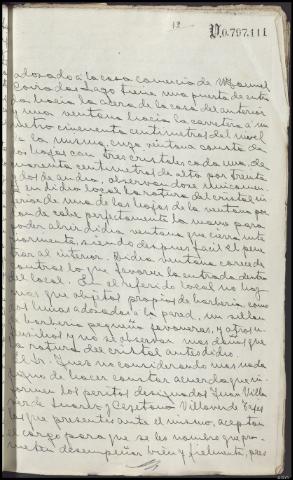 12
V.0.797.111
adosado á la casa comercio de Manuel
Corrados Lago tiene una puerta de entra
da hacia la acera de la casa del anterior
y una ventana hacia la carretra a un
metro cincuenta centimetros del nivel
de la misma, cuya ventana consta de
dos hojas con tres cristales cada una, de
cuarenta centimetros de alto por treinta
y dos de ancho, observandose unicamen
te en dicho local la rotura del cristal in
ferior de una de las hojas de la ventana por
donde cabe perfectamente la mano para
poder abrir dicha ventana que cierra inte
riormente siendo despues facil el pene
trar al interior. Dicha ventana carece de
contras lo que favorece la entrada dentro
del local. En el referido local no hay
mas que objetos propios de barberia, como
son lunas adosadas a la pared, un sillon
de barberia pequeño lavaneras, y otros u
tensilios y no se observan mas daños que
la rotura del cristal antes dicho.
El Sr. Juez no considerando mas nada
digno de hacer constar acuerda que in
formen los peritos designados Juan Villa
verde Suarez y Cayetano Villaverde
los que presentes ante el mismo, aceptan
el cargo para que se les nombra y que pro
meten desempeñar bien y fielmente, pres